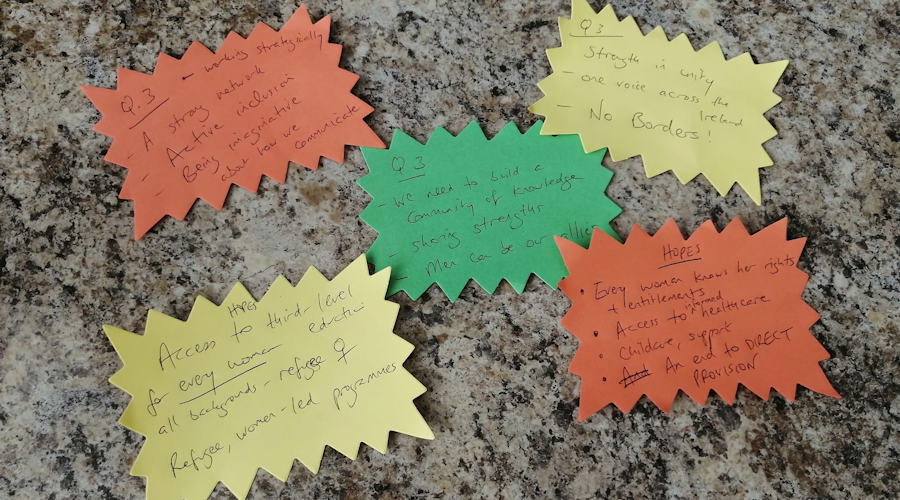 Q.3
- working strategically
- A strong network
- Active inclusion
- Being imaginative
about how we communicate
Q3
Strength in unity
- one voice across the
Ireland
- No Borders!
Q3
- We need to build a
Community of knowledge
sharing strengths
- Men can be our allies
HOPES
Access to third-level
education
for every woman
all backgrounds - refugee ♀
Refugee, women-led programmes
HOPES
• Every woman knows her rights
+ entitlements
• Access to informed healthcare
• Childcare, support
• An end to DIRECT
PROVISION